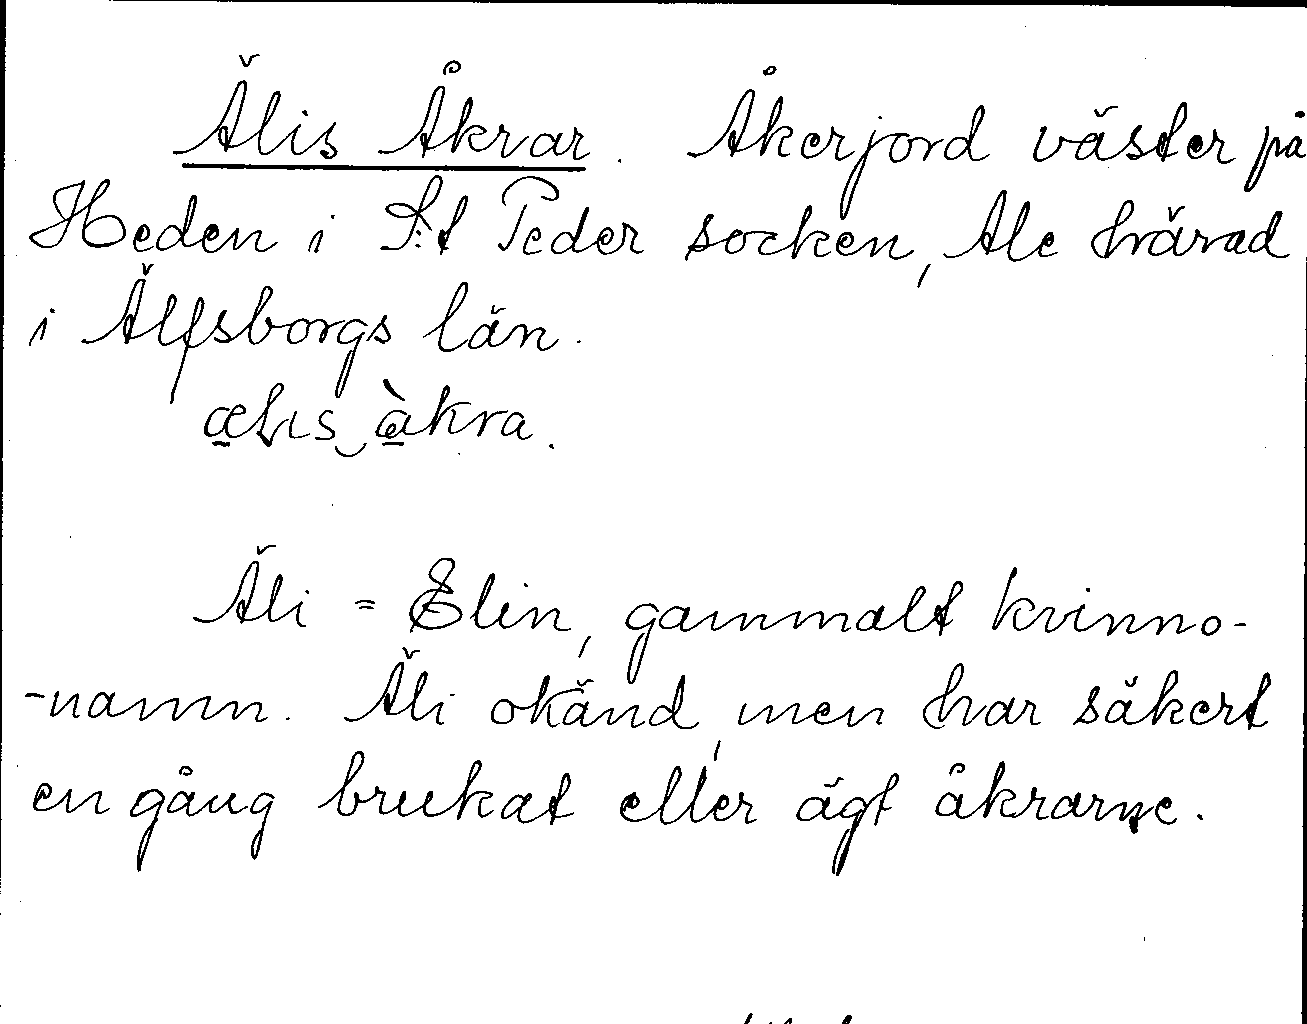 Älis Åkrar. Åkerjord väster på
Heden i S:t Peder socken, Ale härad
i Älfsborgs län.
Äli = Elin, gammalt kvinno-
-namn. Äli okänd, men har säkert
en gång brukat eller ägt åkrarne.